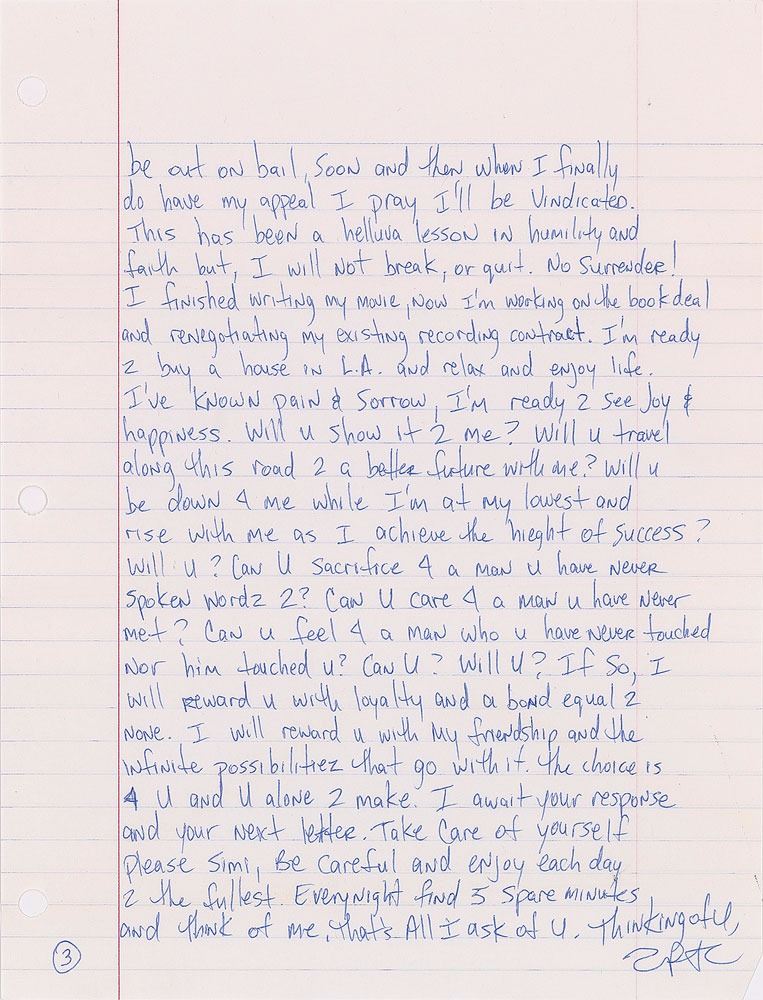 be out on bail, soon and then when I finally
do have my appeal I pray I'll be Vindicated.
This has been a helluva lesson in humility and
faith but, I will not break, or quit. No Surrender!
I finished writing my movie, now I'm working on the book deal
and renegotiating my existing recording contract. I'm ready
2 buy a house in L.A. and relax and enjoy life.
I've known pain & Sorrow, I'm ready 2 see Joy &
happiness. Will u show it 2 me? Will u travel
along this road 2 a better future with me? Will u
be down 4 me while I'm at my lowest and
rise with me as I achieve the hieght of success?
Will u? Can U sacrifice 4 a man u have never
spoken wordz 2? Can U care 4 a man u have never
met? Can u feel 4 a man who u have never touched
nor him touched u? Can U? Will U? If So, I
will reward u with loyalty and a bond equal 2
none. I will reward u with my friendship and the
infinite possibilitiez that go with it. The choice is
4 U and U alone 2 make. I await your response
and your next letter. Take Care of yourself
please Simi, Be Careful and enjoy each day
2 the fullest. Everynight find 5 spare minutes
and think of me, that's All I ask of U. Thinking of U,
3